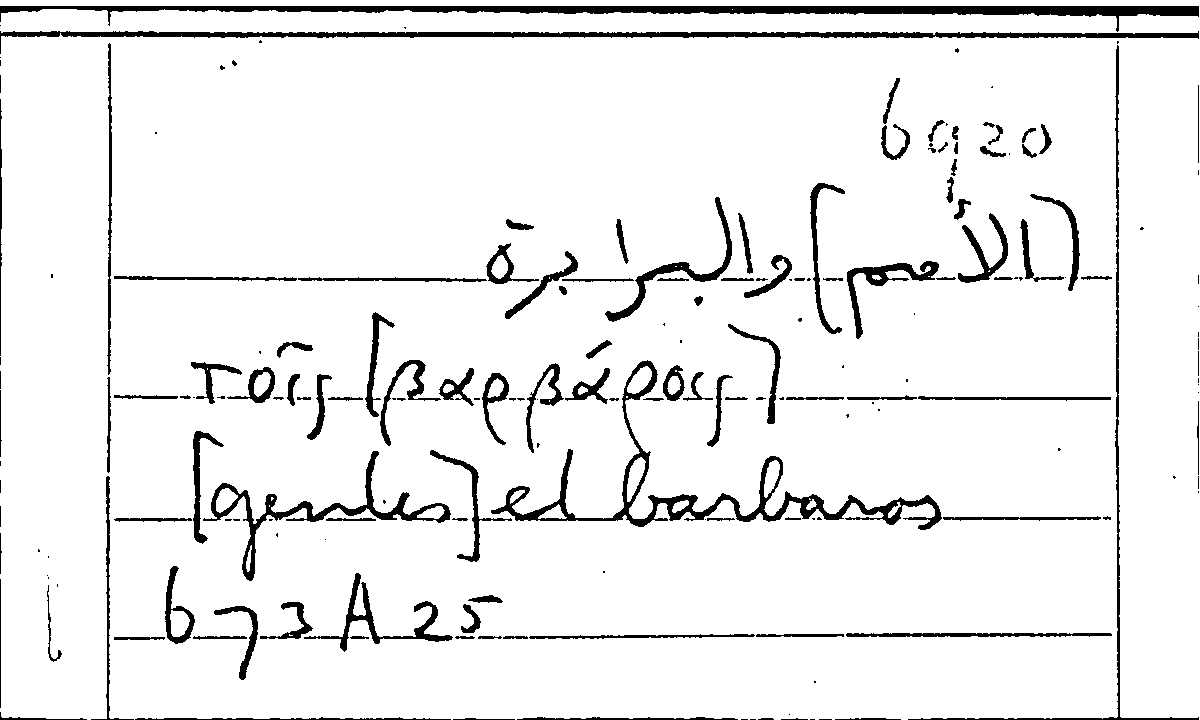 6920
[الأمم] والبرابرة
τοῖς [βαρβάροις]
[gentes] et barbaros
673 A 25